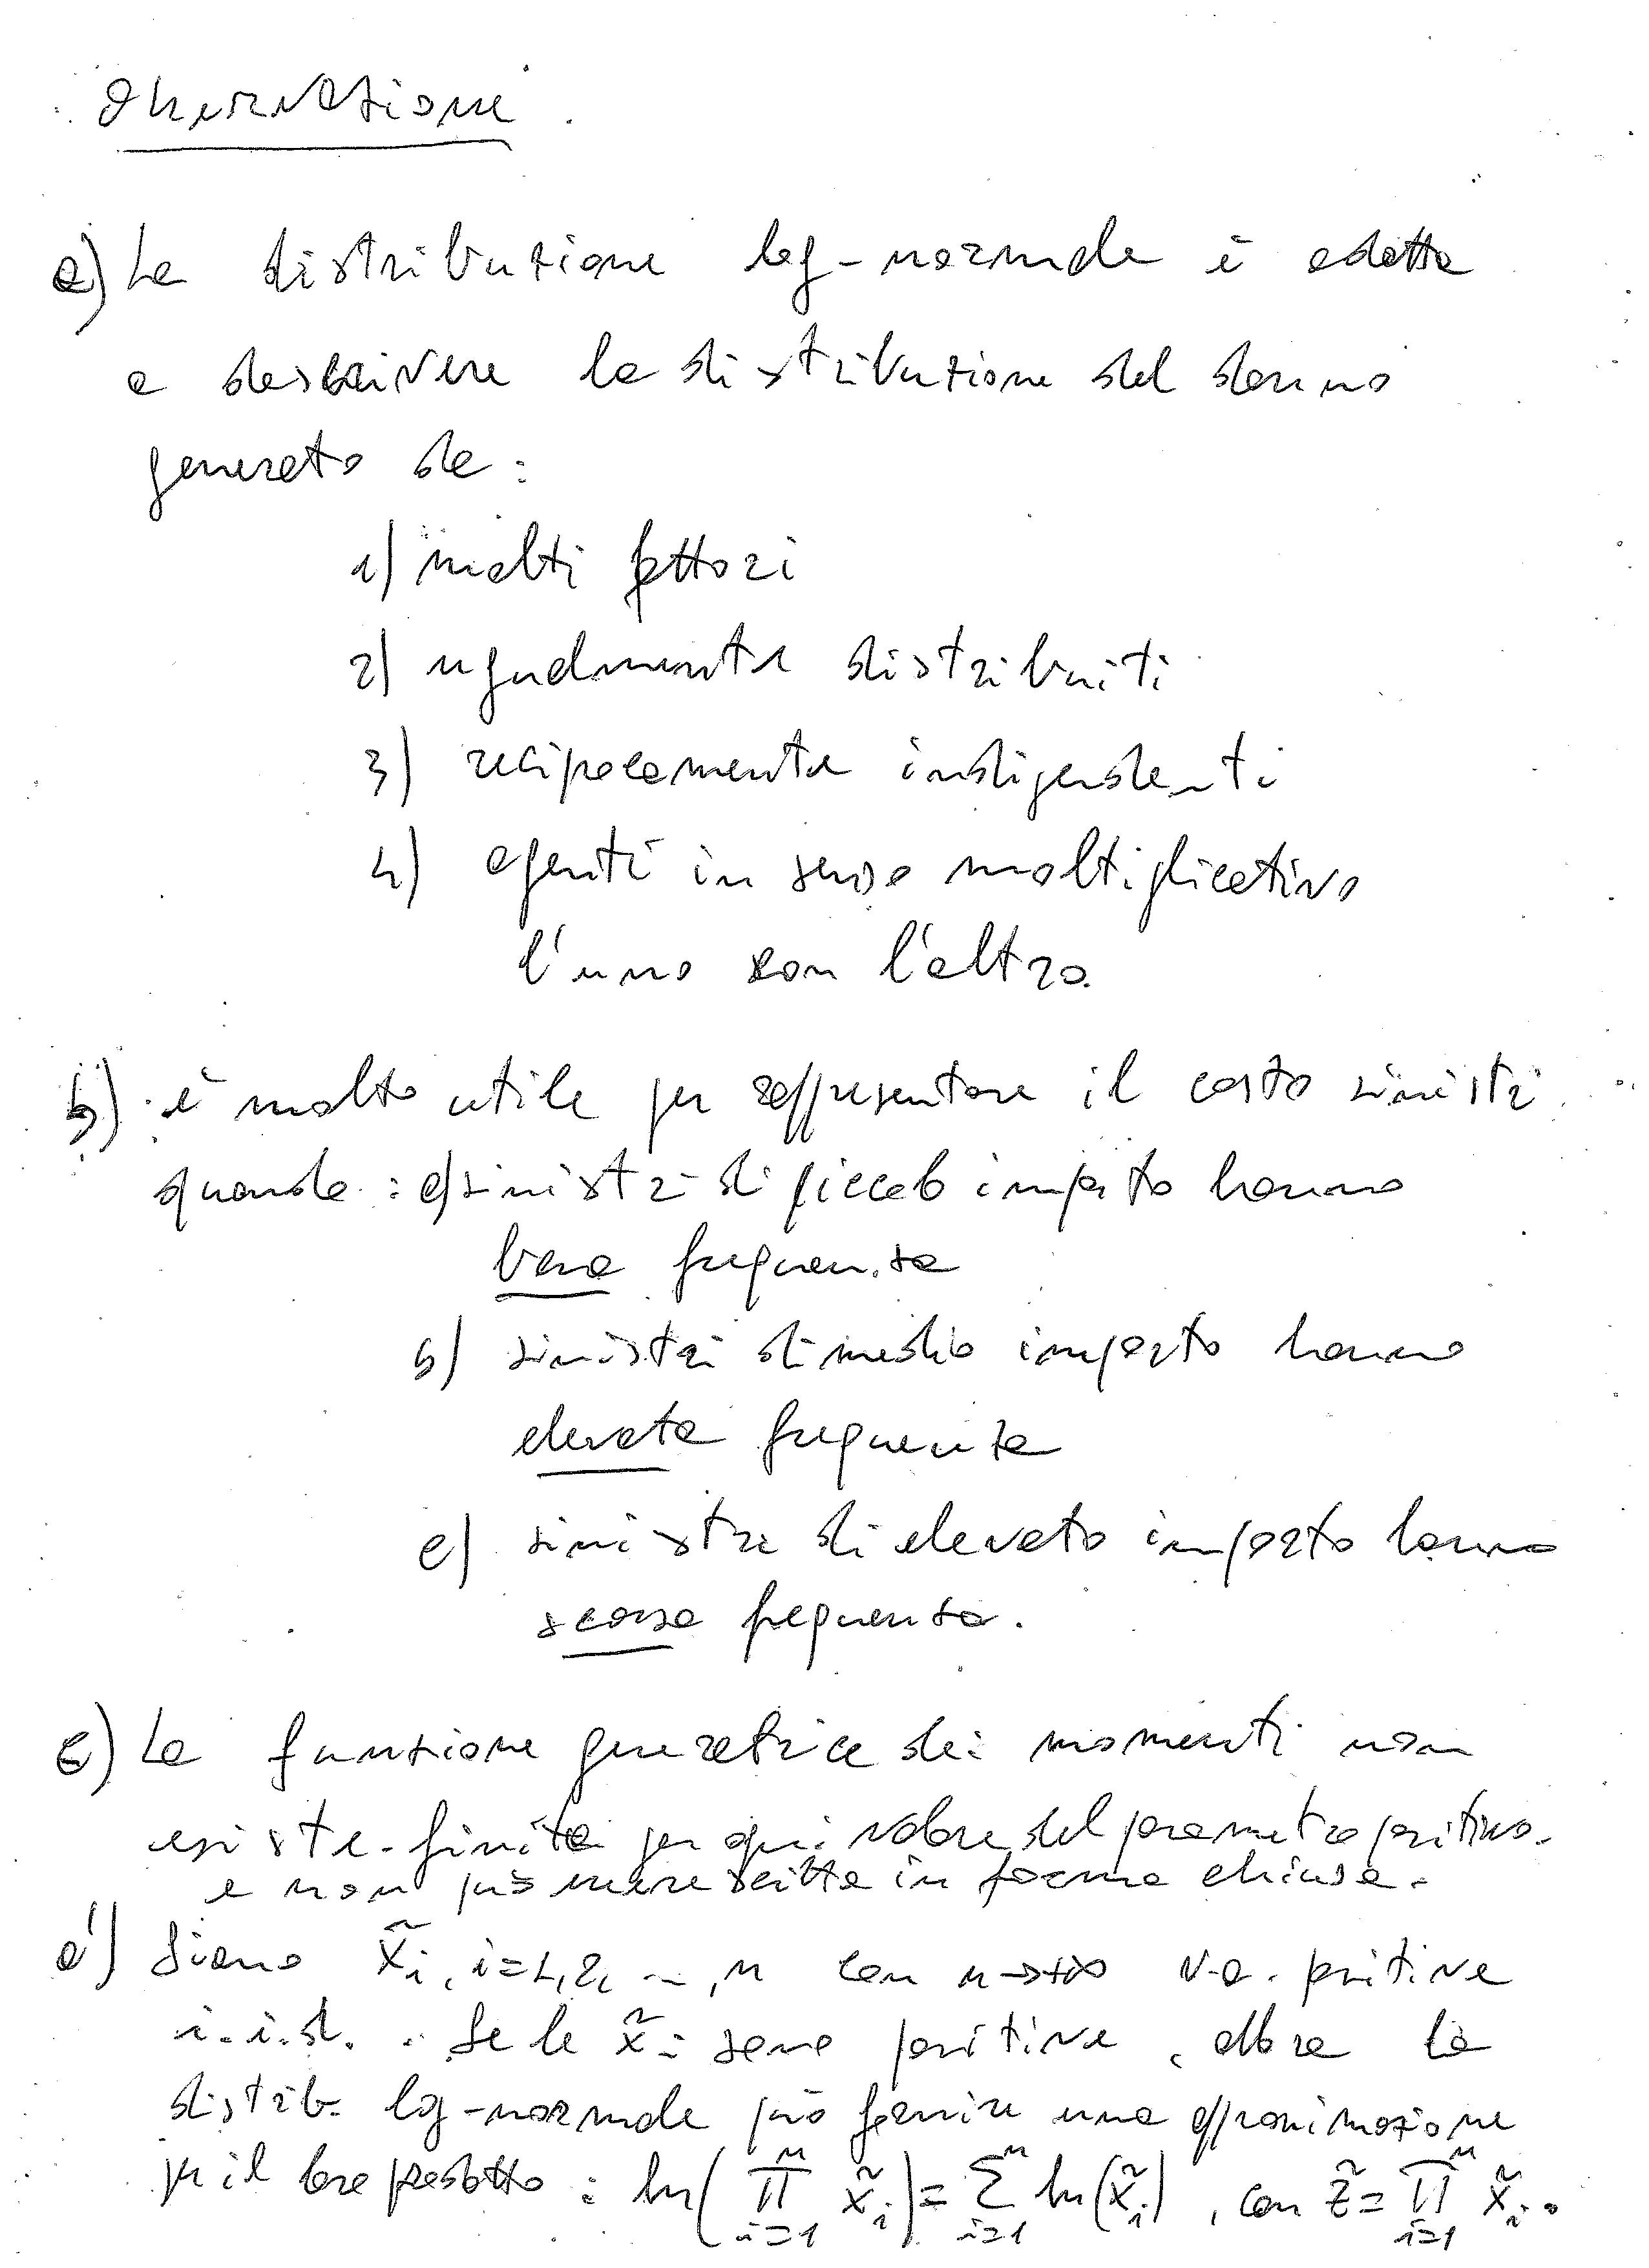 Osservazione.
a) La distribuzione log-normale è adatta
a descrivere la distribuzione del danno
generato da:
1) molti fattori
2) ugualmente distribuiti
3) reciprocamente indipendenti
4) agenti in senso moltiplicativo
l'uno con l'altro.
b) è molto utile per rappresentare il costo sinistri
quando: a) sinistri di piccolo importo hanno
bassa frequenza
b) sinistri di medio importo hanno
elevata frequenza
c) sinistri di elevato importo hanno
scarsa frequenza.
c) La funzione generatrice dei momenti non
esiste finita per ogni valore del parametro positivo.
e non può essere scritta in forma chiusa.
d) Siano x̃i, i=1,2, ..., n con n→+∞ v.a. positive
i.i.d. . Se le x̃i sono positive, allora la
distrib. log-normale può fornire una approssimazione
per il loro prodotto: ln(∏_{i=1}^{n} x̃_i) = ∑_{i=1}^{n} ln(x̃_i), con z̃ = ∏_{i=1}^{n} x̃_i.